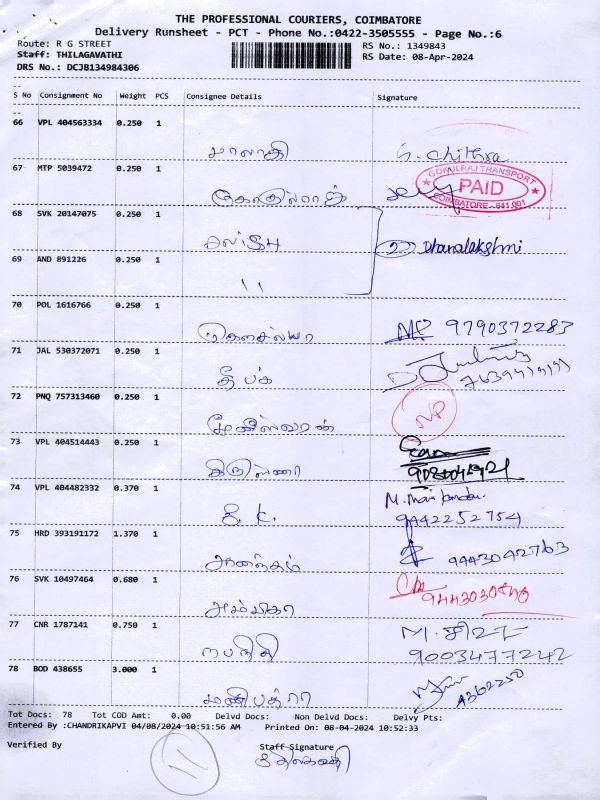 THE PROFESSIONAL COURIERS, COIMBATORE
Delivery Runsheet - PCT - Phone No.:0422-3505555 - Page No.:6
Route: R G STREET
RS No.: 1349843
Staff: THILAGAVATHI
RS Date: 08-Apr-2024
DRS No.: DCJB134984306
S No Consignment No Weight PCS Consignee Details Signature
66 VPL 404563334 0.250 1
மாலதி S. Chithra
67 MTP 5039472 0.250 1
GOKULRAJ TRANSPORT
PAID
COIMBATORE - 641 001
கோகுல்ராஜ்
68 SVK 20147075 0.250 1
Dhanalakshmi
69 AND 891226 0.250 1
11
70 POL 1616766 0.250 1
கௌசல்யா 9790372283
71 JAL 530372071 0.250 1
தீபக்
72 PNQ 757313460 0.250 1
NP
முனீஸ்வரன்
73 VPL 404514443 0.250 1
74 VPL 404482332 0.370 1
S. K. 9442252754
75 HRD 393191172 1.370 1
9443042763
76 SVK 10497464 0.680 1
அம்பிகா
77 CNR 1787141 0.750 1
நபநிதி 9003477242
78 BOD 438655 3.000 1
மணிபத்ரா
Tot Docs: 78 Tot COD Amt: 0.00 Delvd Docs: Non Delvd Docs: Delvy Pts:
Entered By :CHANDRIKAPVI 04/08/2024 10:51:56 AM Printed On: 08-04-2024 10:52:33
Verified By Staff Signature
11